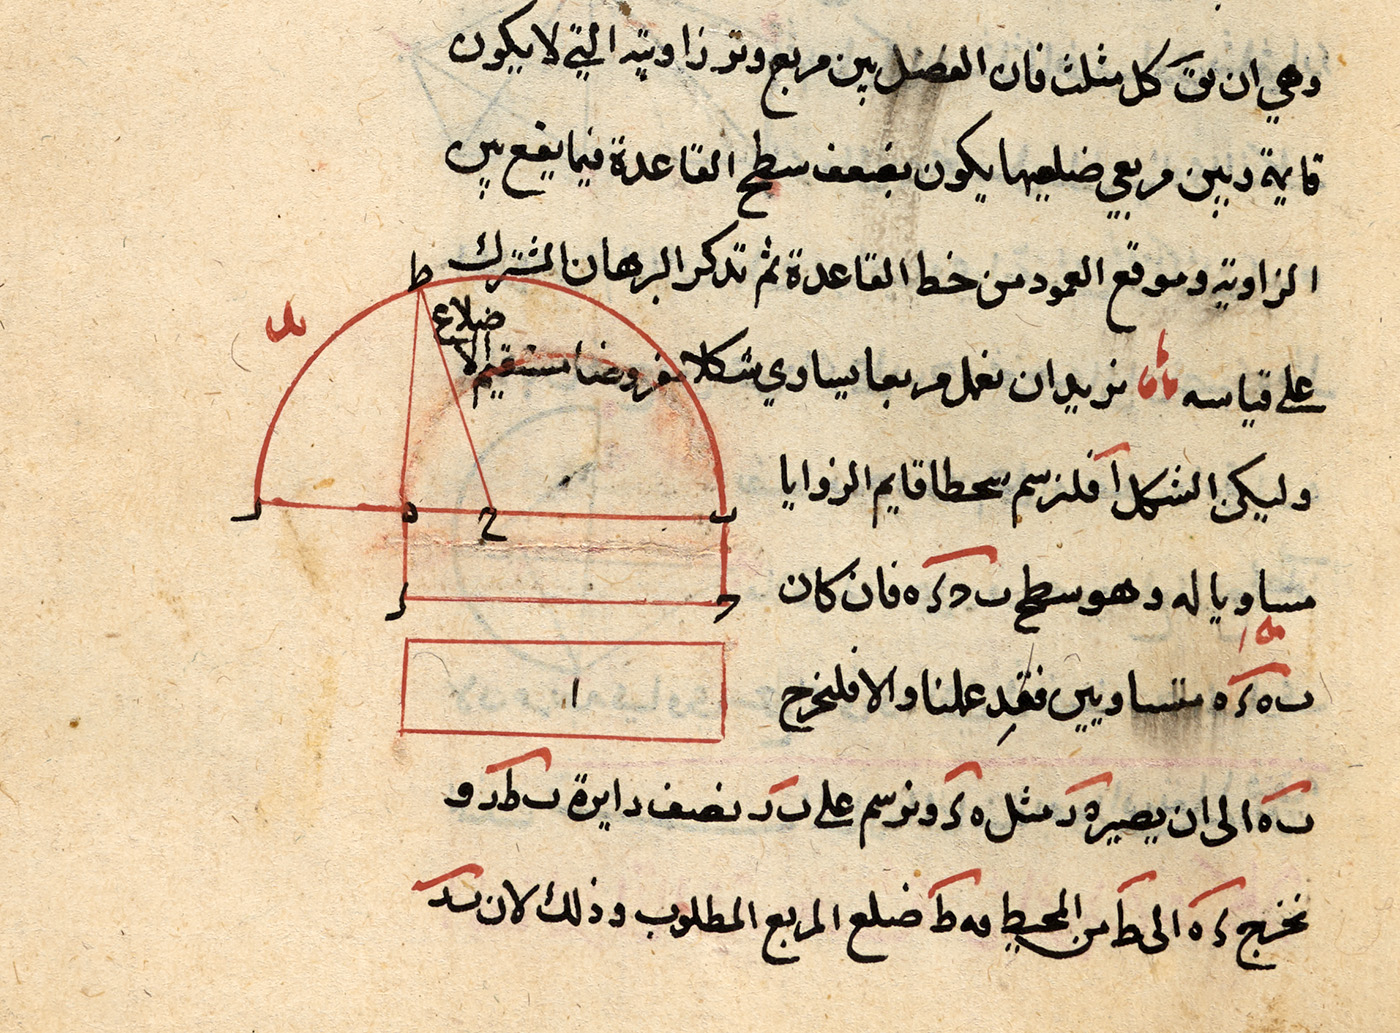 وهي ان نق كل مثلث فان الفضل بين مربع وتر زاويته التي لا يكون
قايمة وبين مربعي ضلعيها يكون بضعف سطح القاعدة فيما يقع بين
الزاوية وموقع العمود من خط القاعدة ثم تذكر البرهان المشترك
على قياسه نريد ان نعمل مربعا يساوي شكلا مفروضا مستقيم الا
ضلاع
وليكن الشكل ا فلنرسم سطحا قايم الزوايا
مساويا له وهو سطح ب ح ر ه فان كان
ب ه ه ر متساويين فقد علمنا والا فلنخرج
ب ه الى ان يصير ه د مثل ه ر ونرسم على ب د نصف دايرة ب ط د و
نخرج ر ه الى ط من المحيط فه ط ضلع المربع المطلوب وذلك لان ب د
ط
د
ه
ح
ب
ر
ح
ا